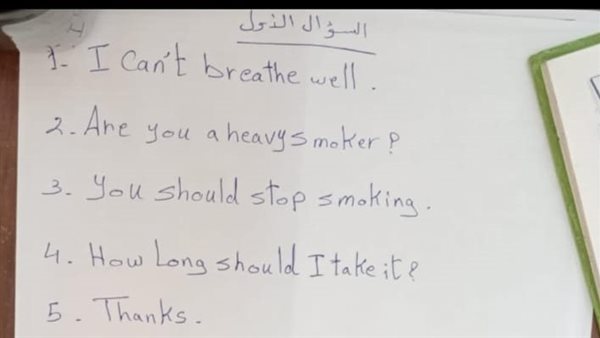 السؤال الأول
1- I Can't breathe well.
2. Are you a heavy smoker?
3. You should stop smoking.
4. How Long should I take it?
5. Thanks.